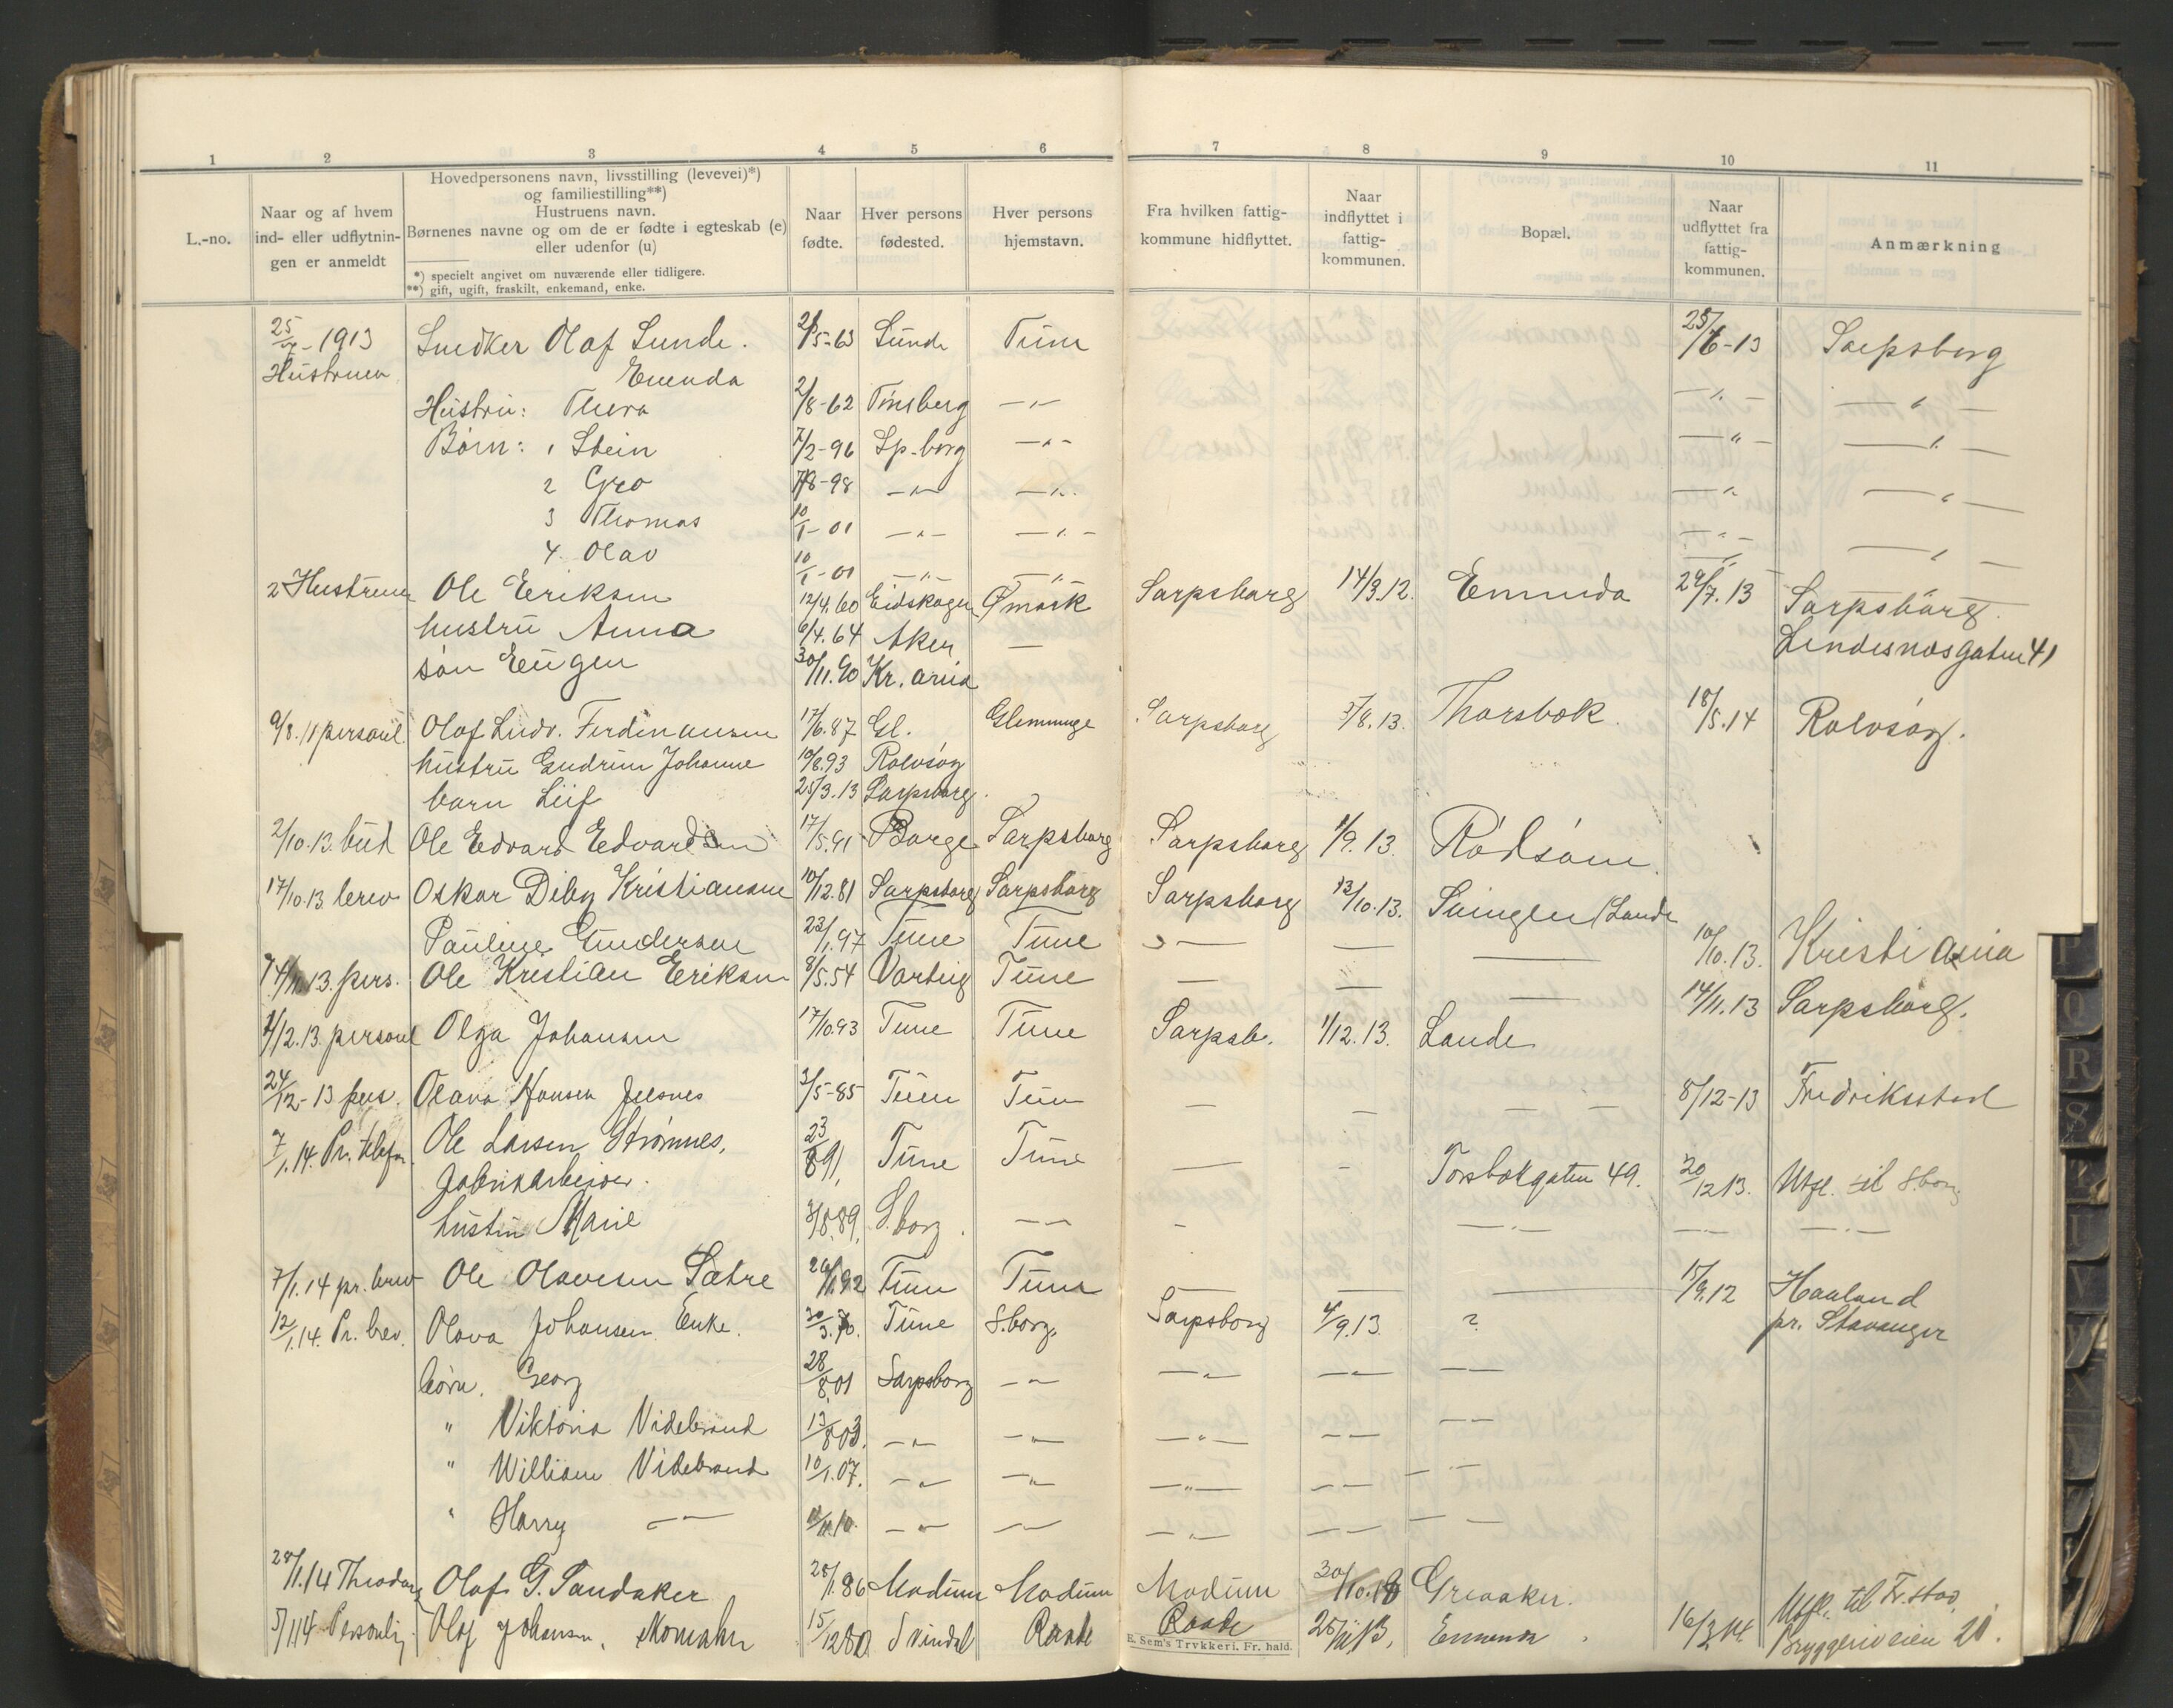 1 2 3 4 5 6 7 8 9 10 11
L.-no.
Naar og af hvem
ind- eller udflytnin-
gen er anmeldt
Hovedpersonens navn, livsstilling (levevei)*)
og familiestilling**)
Hustruens navn.
Børnenes navne og om de er fødte i egteskab (e)
eller udenfor (u)
*) specielt angivet om nuværende eller tidligere.
**) gift, ugift, fraskilt, enkemand, enke.
Naar
fødte.
Hver persons
fødested.
Hver persons
hjemstavn.
Fra hvilken fattig-
kommune hidflyttet.
Naar
indflyttet i
fattig-
kommunen.
Bopæl.
Naar
udflyttet fra
fattig-
kommunen.
Anmærkning
1913 Snedker Olaf Sunde. 5-63 Sunde Tune 25/6-13 Sarpsborg
Hustruen Enenda
Hustru: Thora 2/8-62 Tønsberg -"- -"- -"-
Børn: 1 Stein 7/2-96 Sp-borg -"- -"- -"-
2 Gro 8-98 -"- -"- -"- -"-
3 Thomas 10/1-01 -"- -"- -"-
4. Olav 10/1-01 -"- -"- -"- -"-
2 Hustruen Ole Eriksen 12/4.60 Eidskogen Ømark Sarpsborg 14/3.12. Enenda 29/7.13 Sarpsborg.
hustru Anna 6/4.64 Aker — Lindesnæsgaten 41
søn Eugen 30/11.90 Kr.ania
9/8.11 personl Olaf Ludv. Ferdinansen 17/6.87 Gl. Glemminge Sarpsborg 5/8.13. Thorsbæk. 18/5.14 Rolvsøy.
hustru Gudrun Johanne 10/8.93 Rolvsøy
barn Leif 25/3.13 Sarpsborg.
2/10.13. bud Ole Edvard Edvardsen 17/5.91 Borge Sarpsborg Sarpsborg 1/9.13. Rødsøm.
17/10.13. brev Oskar Diby Kristiansen 10/12.81 Sarpsborg Sarpsborg Sarpsborg 13/10.13. Svingen/Lande
Pauline Gundersen 23/1.97 Tune Tune — — — 10/10.13. Kristiania
13. pers. Ole Kristian Eriksen 8/5.54 Varteig Tune — — — 14/11.13 Sarpsborg.
1/12.13. personl Olga Johansen 17/10.93 Tune Tune Sarpsb. 1/12.13. Lande
24/12-13 pers. Olava Hansen 3/5-85 Tune Tune — — — — 8/12-13 Fredriksstad
7/1.14. Pr. telefon. Ole Larsen Strømnes, 23/8 91, Tune Tune — - Torsbækgaten 49. 20/12 13. Utfl. til S.borg
Fabrikarbeider.
hustru Marie 8.89. S.borg. -"- - -"- -"- -"-
7/1.14 pr. brev Ole Olavesen Sætre 92 Tune Tune — — — 15/9.12 Haaland
12/1.14. Pr. brev. Olava Johansen. Enke. 30/3. Tune S.borg. Sarpsborg 4/9.13. ? pr. Stavanger
børn. Georg 28/8.01 Sarpsborg -"- -"- -"- -"-
" Viktoria Videbrand 13/8 03. -"- -"- -"- -"- -"-
" William Videbrand 10/1.07. -"- -"- -"- -"- -"-
" Harry -"- 10. -"- -"- -"- -"- -"-
28/1.14 Theodor Olaf G. Sandaker 28/1.86 Modum Modum Modum 30/10.13 Greaaker.
5/1 14 Personlig Olaf Johansen, 15/12 80 Svindal Raade Raade 25/11 13, Enenda. 16/3 14 Utfl. til Fr.stad
Bryggeriveien 21.
E. Sem's Trykkeri, Fr. hald.
P
Q
R
S
T
V